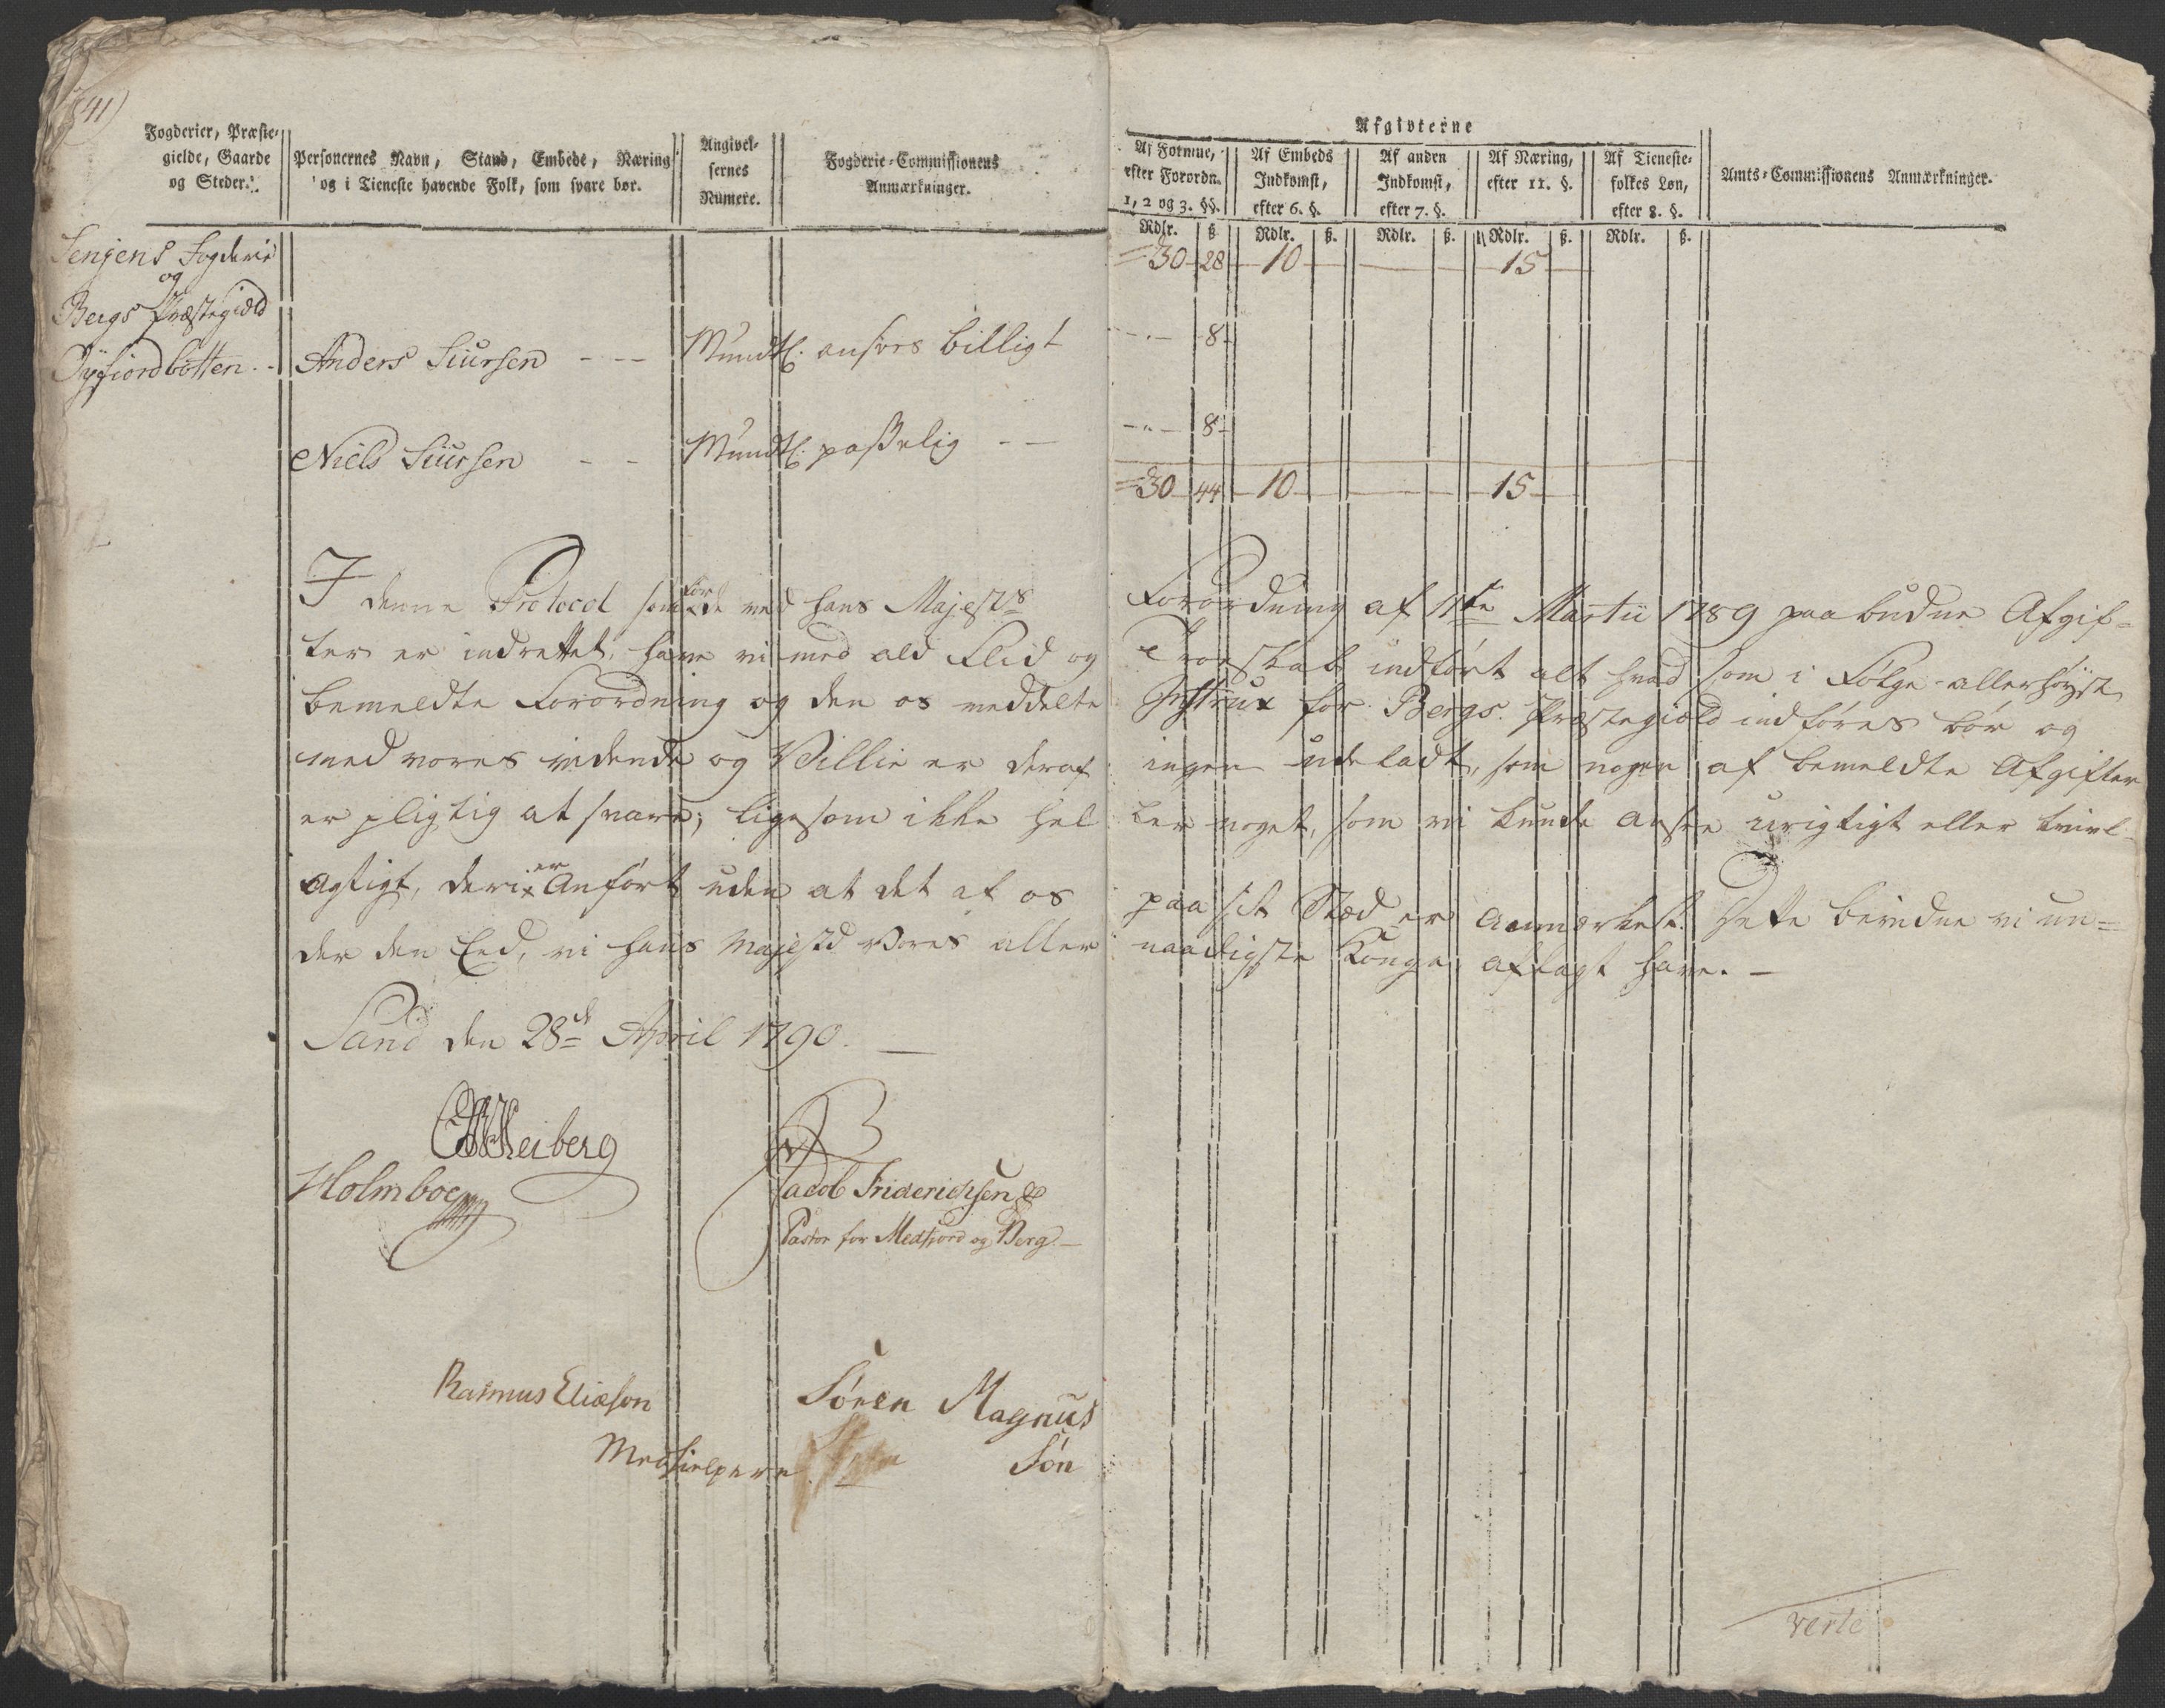 41)
Fogderier, Præste-
gielde, Gaarde
og Steder.
Personernes Navn, Stand, Embede, Næring
og i Tieneste havende Folk, som svare bør.
Angivel-
sernes
Numere.
Fogderie-Commissionens
Anmærkninger.
Afgivterne
Af Formue,
efter Forordn.
1, 2 og 3. §§.
Af Embeds
Indkomst,
efter 6. §.
Af anden
Indkomst,
efter 7. §.
Af Næring,
efter 11. §.
Af Tieneste-
folkes Løn,
efter 8. §.
Amts-Commissionens Anmærkninger.
Rdlr. ß Rdlr. ß. Rdlr. ß. Rdlr. ß. Rdlr. ß.
Senjens Fogderie 30 28 10 15
og
Bergs Præstegield
Sÿfiordbotten Anders Siursen Mundtl: ansees billigt 8
Niels Siursen Mundtl: passelig 8
30 44 10 15
I denne Protocol som for de ved hans Majestæts Forordning af 11te Martii 1789 paabudne Afgif=
ter er indrettet, have vi med ald Flid og Troeskab indført alt hvad som i Følge allerhøyst
bemeldte Forordning og den os meddelte Instrux for Bergs Præstegield indføres bør og
med vores vidende og Villie er deraf ingen udeladt, som nogen af bemeldte Afgifter
er pligtig at svare; ligesom ikke hel ler noget, som vi kunde ansee urigtigt eller tvivl-
agtigt, deri er Anført uden at det af os paa sit Stæd er anmerket. Dette bevidne vi un=
der den Eed, vi hans Majestæt vores aller naadigste Konge aflagt have. —
Sand den 28de April 1790. —
Heiberg
Holmboe
Jacob Friderichsen
Pastor for Medfiord og Berg. —
Rasmus Eliæson
Søren Magnus
Søn
Medhielpere
verte